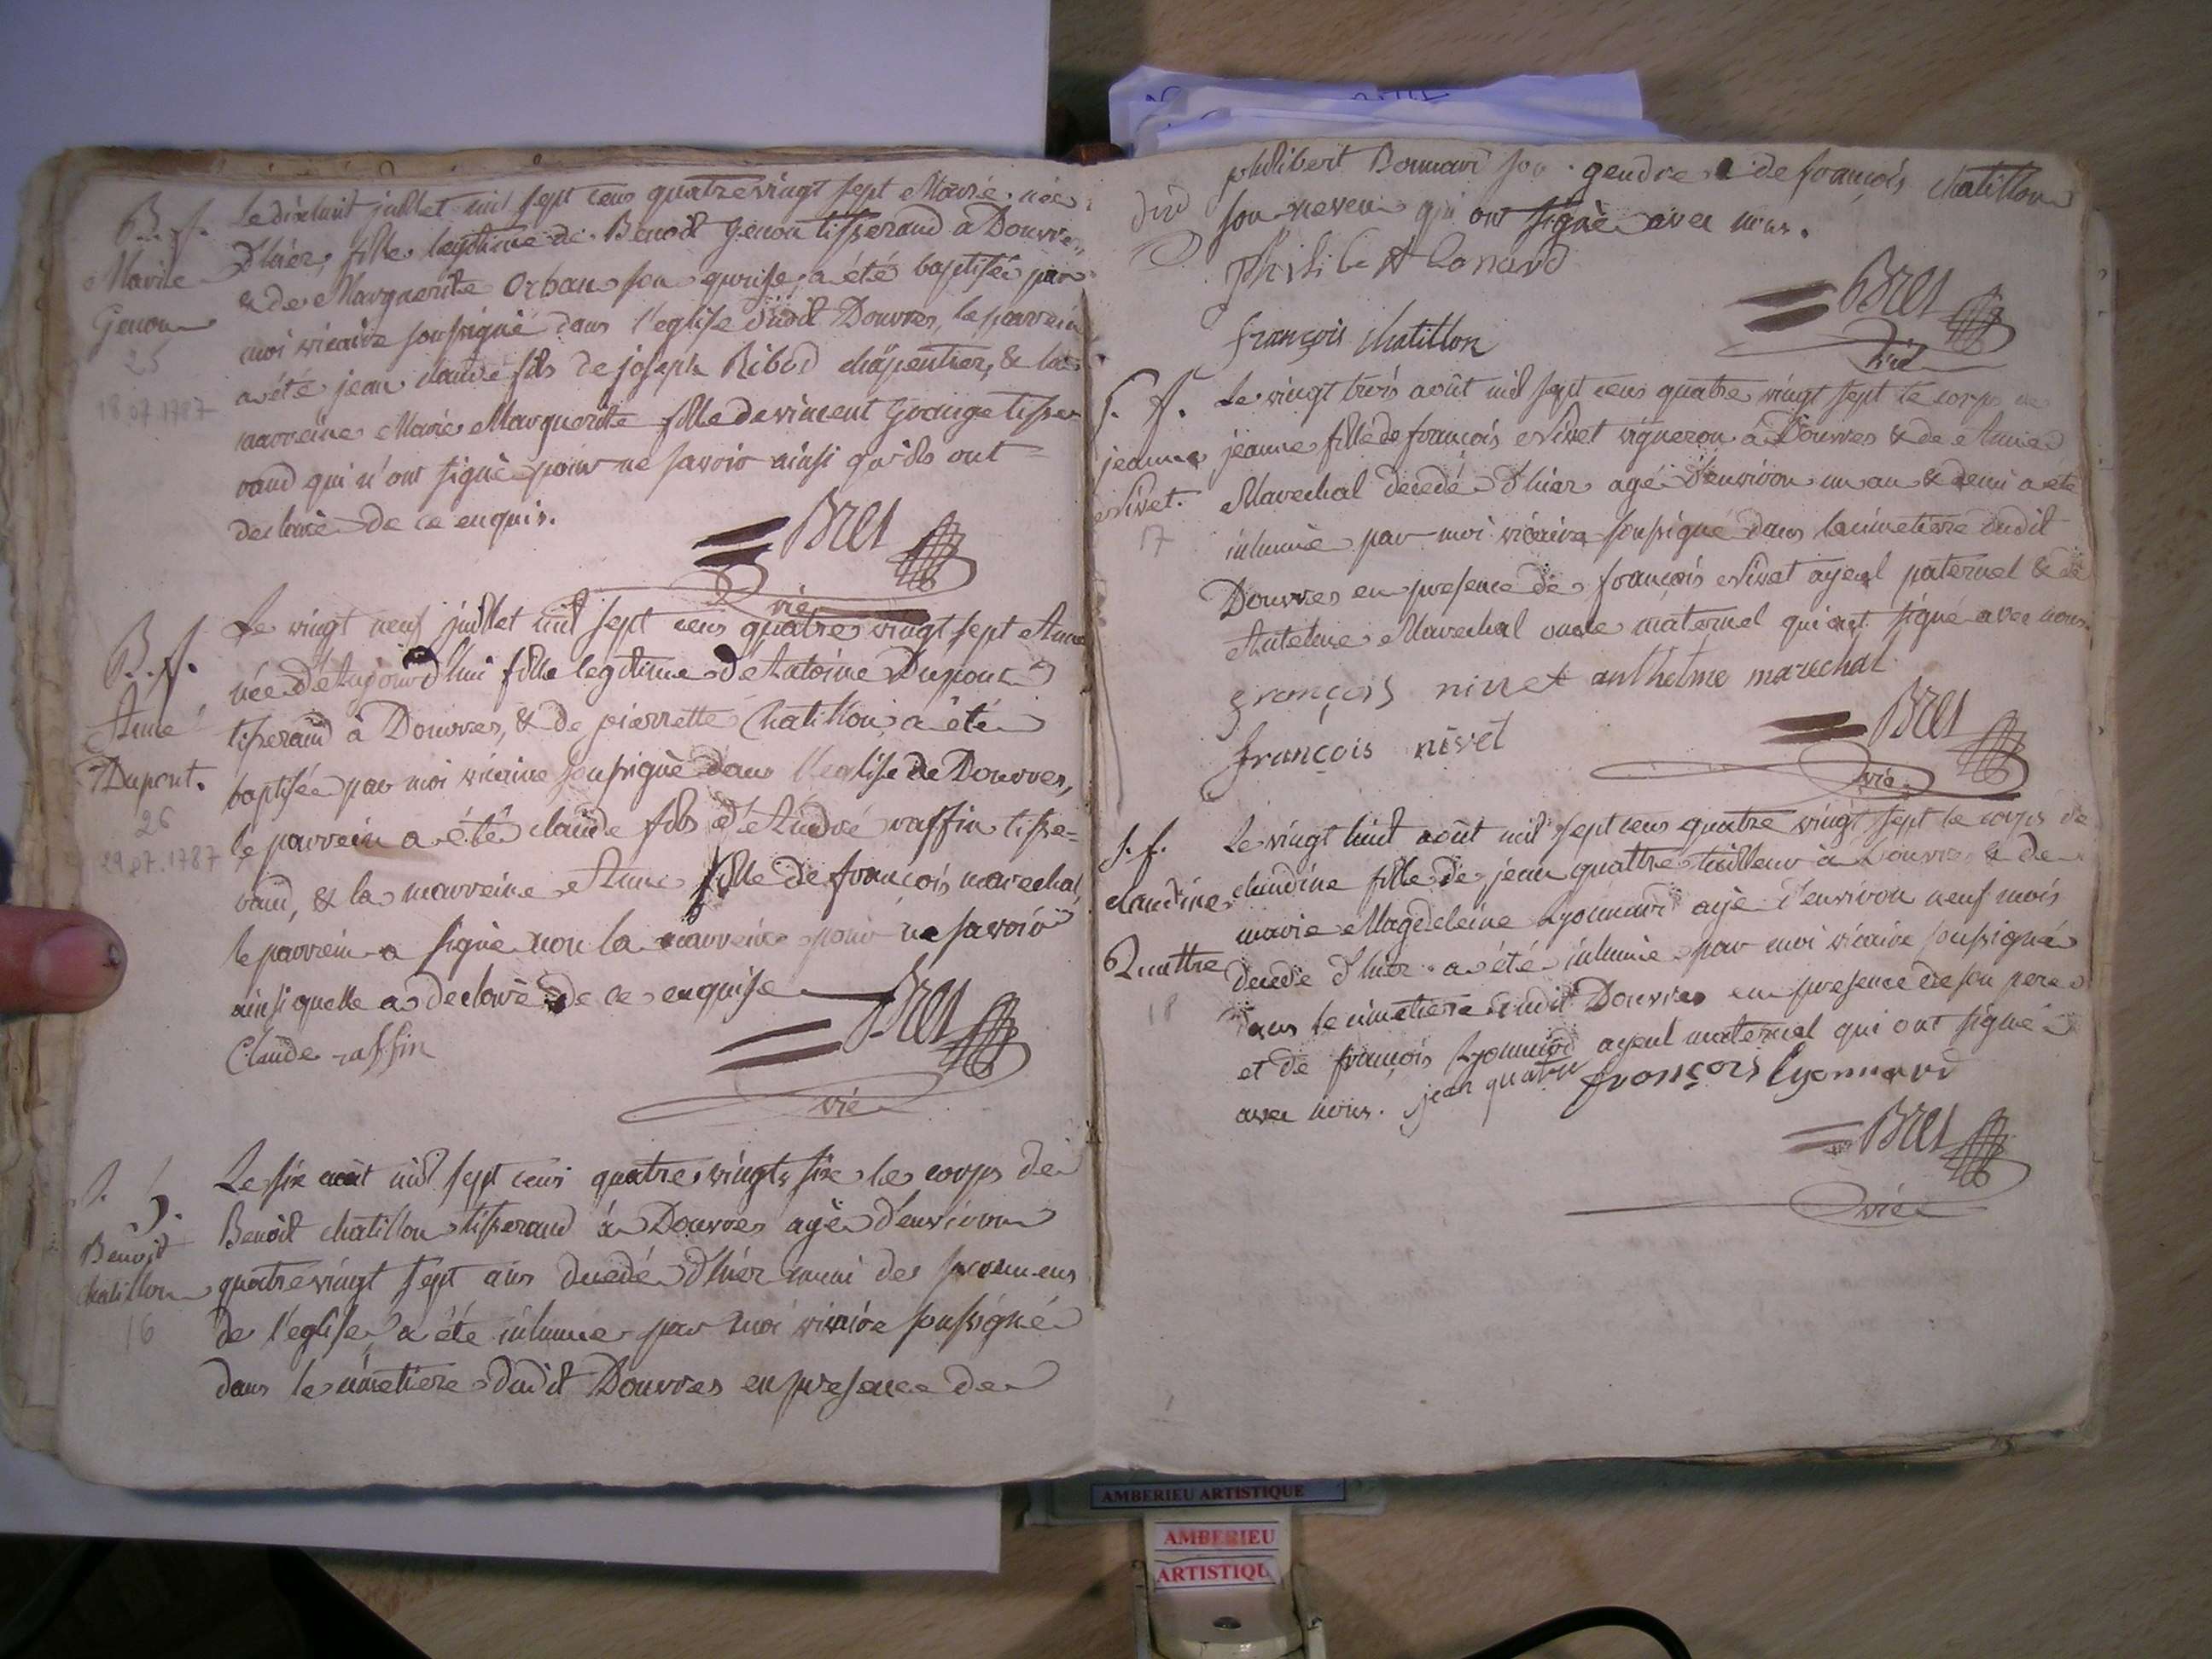 B. f.
Marie
Genou
25
18.07.1787
Le dixhuit juillet mil sept cens quatrevingt sept Marie née
d'hier, fille legitime de Benoit Genou tisserand à Douvres,
& de Marguerite Orban son epouse, a été baptisée par
moi vicaire soussigné dans l'eglise dudit Douvres, le parrein
a été jean claude fils de joseph Ribod charpentier, & la
marreine Marie Marguerite fille de vincent Grange tisse-
rand qui n'ont signé pour ne savoir ainsi qu'ils ont
declaré de ce enquis.
Bret
vic
B. f.
Anne
Dupont.
26
29.07.1787
Le vingt neuf juillet mil sept cens quatre vingt sept Anne
née d'Aujourd'hui fille legitime d'Antoine Dupont
tisserand à Douvres, & de pierrette Chatillon, a été
baptisée par moi vicaire soussigné dans l'eglise de Douvres,
le parrein a été claude fils d'André raffin tisse=
rand, & la marreine Anne fille de françois marechal
le parrein a signé non la marreine pour ne savoir
ainsi quelle a declaré de ce enquise
Claude raffin
Bret
vic
S. f.
Benoit
chatillon
16
Le six août mil sept cens quatre vingts six le corps de
Benoit chatillon tisserand à Douvres agé d'environ
quatrevingt sept ans decedé d'hier muni des sacremens
de l'eglise a été inhumé par moi vicaire soussigné
dans le cimetiere dudit Douvres en presence de
philibert Bonnard son gendre & de françois chatillon
son neveu qui ont signé avec nous.
Philibert bonard
françois chatillon
Bret
vic
S. f.
jeanne
Nivet.
17
Le vingt trois août mil sept cens quatre vingt sept le corps de
jeanne fille de françois Nivet vigneron à Douvres & de Anne
Marechal decedé d'hier agé d'environ un an & demi a été
inhumé par moi vicaire soussigné dans le cimetiere dudit
Douvres en presence de françois Nivet ayeul paternel & de
Antelme Marechal oncle maternel qui ont signé avec nous.
françois nivet anthelme marechal
françois nivet
Bret
vic
S. f.
claudine
Quattre
18
Le vingt huit août mil sept cens quatre vingt sept le corps de
claudine fille de jean quattre tailleur à Douvres & de
marie Magdeleine Lyonnard agé d'environ neuf mois
decedé d'hier a été inhumé par moi vicaire soussigné
dans le cimetiere dudit Douvres en presence de son pere
et de françois Lyonnard ayeul maternel qui ont signé
avec nous. jean quatre françois lyonnard
Bret
vic
AMBERIEU ARTISTIQUE
AMBERIEU
ARTISTIQU